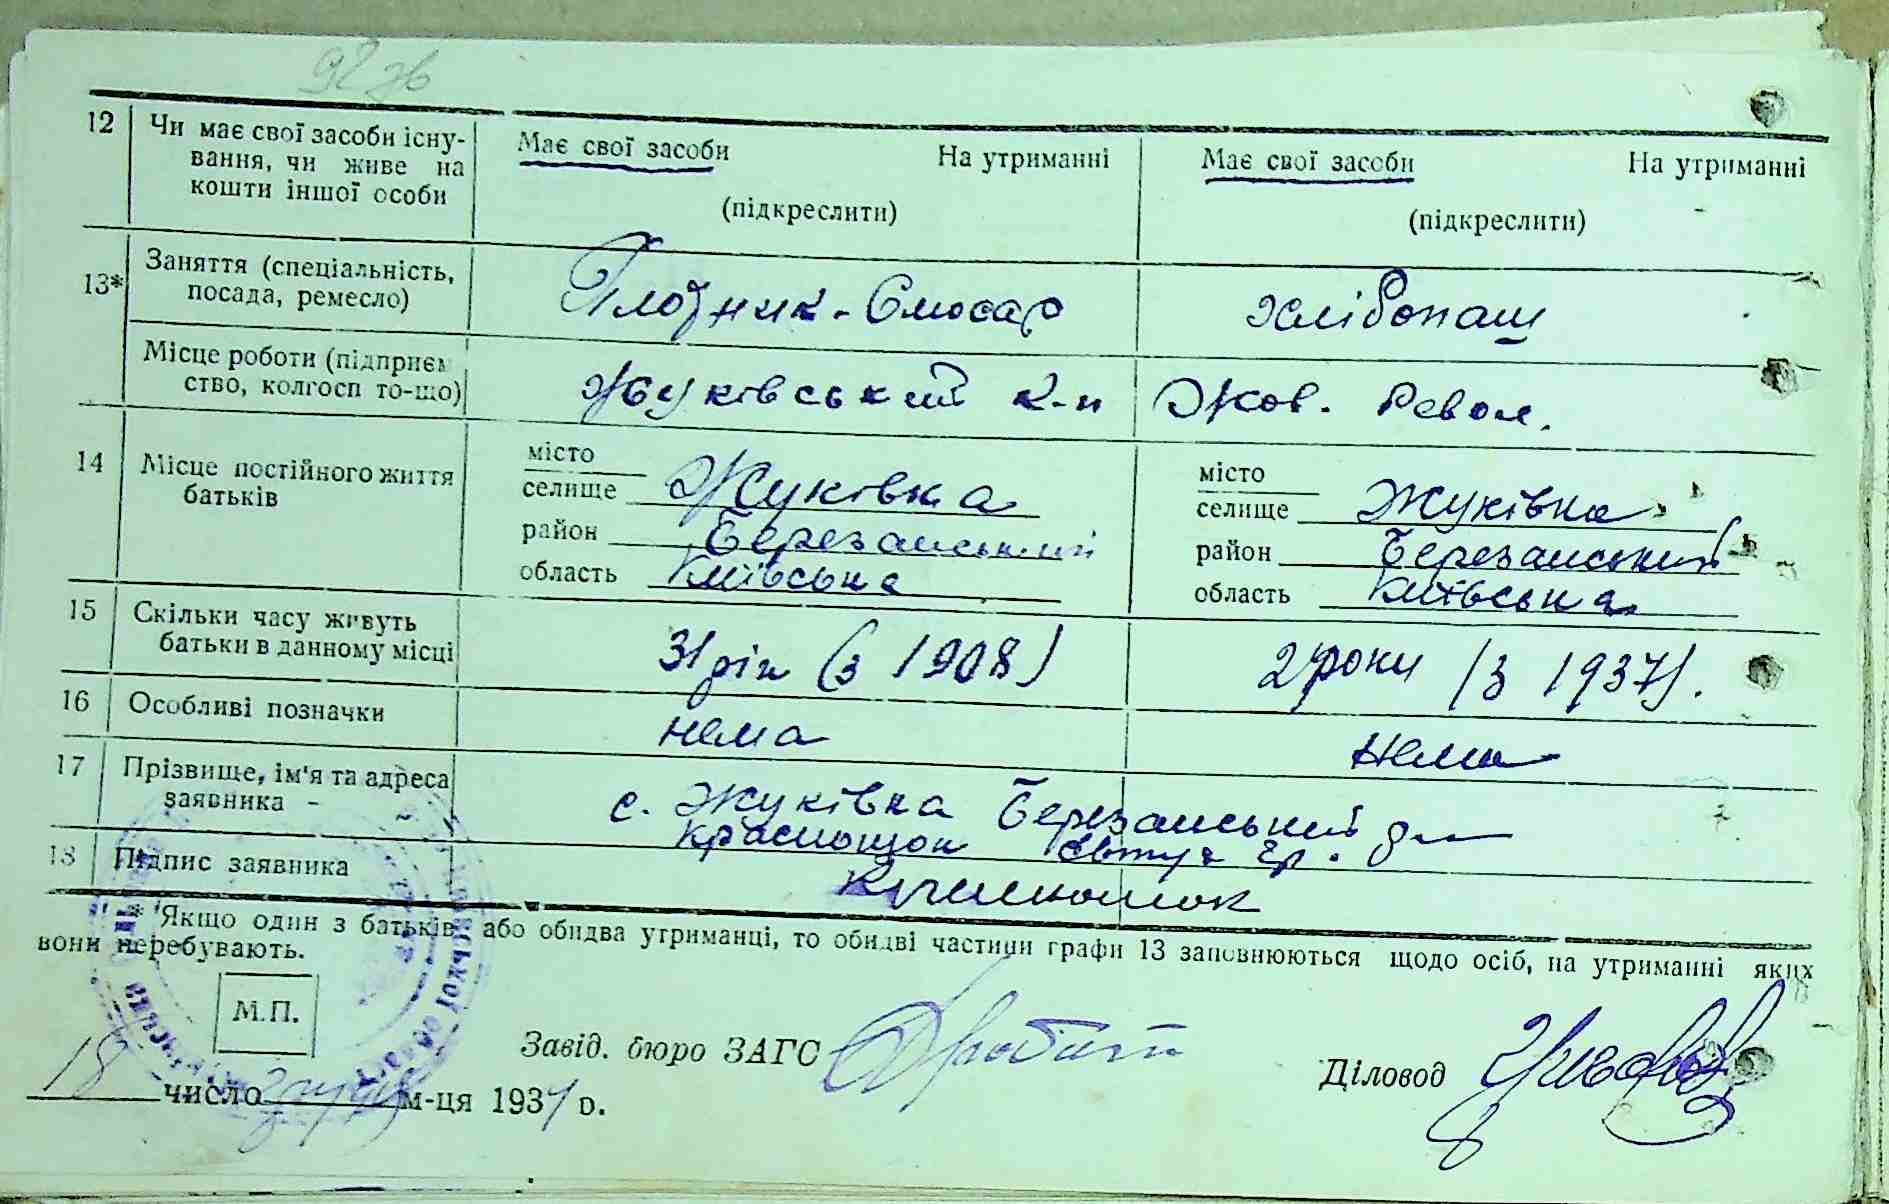 92 зв
12 Чи має свої засоби існу-
вання, чи живе на
кошти іншої особи
Має свої засоби На утриманні
(підкреслити)
Має свої засоби На утриманні
(підкреслити)
13* Заняття (спеціальність,
посада, ремесло)
Плотник-Слюсар
хлібопаш
Місце роботи (підприєм
ство, колгосп то-що)
Жуківський к-п
Жов. Револ.
14 Місце постійного життя
батьків
місто
селище Жуківка
район Березанський
область Київська
місто
селище Жуківка
район Березанський
область Київська
15 Скільки часу живуть
батьки в данному місці
31 рік (з 1908)
2 роки (з 1937).
16 Особливі позначки
нема
нема
17 Прізвище, ім'я та адреса
заявника -
с. Жуківка Березанський
Краснощок гр.
18 Підпис заявника
* Якщо один з батьків або обидва утриманці, то обидві частини графи 13 заповнюються щодо осіб, на утриманні яких
вони перебувають.
М.П.
Завід. бюро ЗАГС
Діловод
18 число грудня м-ця 193 р.